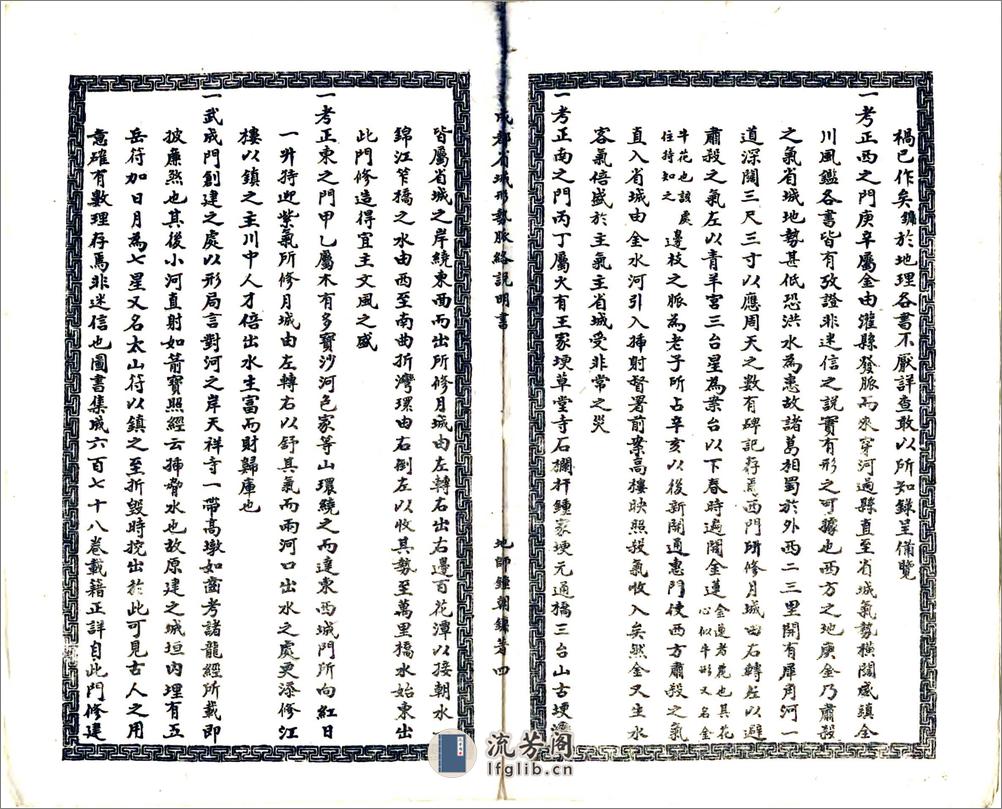 禍已作矣鐮於地理各書不厭詳查敢以所知錄呈備覽
一考正西之門庚辛屬金由灌縣發脈而來穿河過縣直至省城氣勢橫闊威鎮全
川風鑑各書皆有攷證非迷信之說實有形之可據也西方之地庚金乃肅殺
之氣省城地勢甚低恐洪水為患故諸葛相蜀於外西二三里開有犀角河一
道深闊三尺三寸以應周天之數有碑記存焉西門所修月城由右轉左以避
肅殺之氣左以青羊宮三台星為案台以下春時遍開金蓮金蓮者花也其花
心似牛形又名金
牛花也該處住持知之邊枝之脈為老子所占辛亥以後新開通惠門使西方肅殺之氣
直入省城由金水河引入掃射督署前案高樓映照殺氣收入矣然金又生水
客氣倍盛於主氣主省城受非常之災
一考正南之門丙丁屬火有王家埂草堂寺石欄杆鍾家埂元通橋三台山古埂
成都省城形勢脈絡說明書
地師鐘朝鐮著 四
皆屬省城之岸繞東西而出所修月城由左轉右出右邊百花潭以接朝水
錦江笮橋之水由西至南曲折灣環由右倒左以收其勢至萬里橋水始東出
此門修造得宜主文風之盛
一考正東之門甲乙屬木有多寶沙河色家等山環繞之而達東西城門所向紅日
一升持迎紫氣所修月城由左轉右以舒其氣而兩河口出水之處更添修江
樓以鎮之主川中人才倍出水生富而財歸庫也
一武成門創建之處以形局言對河之岸天祥寺一帶高墩如齒考諸龍經所載即
披廉煞也其後小河直射如箭寶照經云掃脅水也故原建之城垣內埋有五
岳符加日月為七星又名太山符以鎮之至折毀時挖出於此可見古人之用
意確有數理存焉非迷信也圖書集成六百七十八卷載籍正詳自此門修建
流芳閣
lfglib.cn